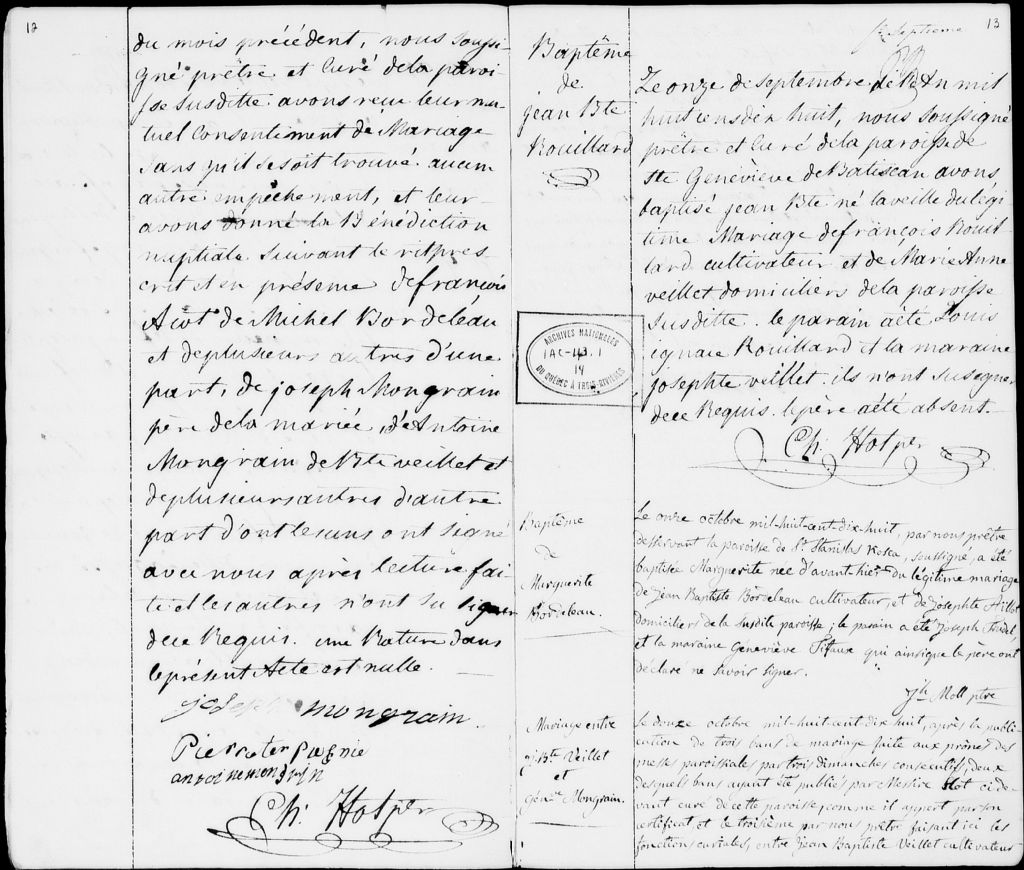 12
du mois précédent, nous soussi-
gné prêtre et Curé dela paroi-
sse susditte avons reçu leur mu-
tuel Consentiment de Mariage
sans qu'il se soit trouvé aucun
autre empêchement, et leur
avons donné la Bénédiction
nuptiale suivant le rit pres-
crit et en présense de françois
de Michel Bordeleau
et de plusieurs autres d'une
part, de joseph Mongrain
père dela mariée, d'Antoine
Mongrain de Bte veillet et
de plusieurs autres d'autre
part d'ont lesuns ont signé
avec nous après lecture fai-
te et les autres n'ont su signer
dece Requis. une Rature dans
le présent Acte est nulle.
joseph mongrain
Ch. Hotper
13
septieme
Baptême
de
jean Bte
Rouillard
Le onze de septembre de l'An mil
huit cens dix huit, nous soussigné
prêtre et Curé dela paroisse de
Ste Genèviève de Batiscan avons
baptisé jean Bte né laveille du légi-
time Mariage de françois Rouil-
lard cultivateur et de Marie Anne
veillet domiciliers dela paroisse
susditte. le parain aété Louis
ignace Rouillard et la maraine
josephte veillet. ils n'ont su segner
dece Requis. le père aété absent.
Ch. Hotper
ARCHIVES NATIONALES
1AC-43.1
14
DU QUÉBEC À TROIS-RIVIÈRES
Baptême
de
Marguerite
Bordeleau.
Le onze octobre mil-huit-cent-dix-huit, par nous prêtre
desservant la paroisse de St Stanislas Koska, soussigné, a été
baptisée Marguerite née d'avant-hier du légitime mariage
de Jean Baptiste Bordeleau cultivateur, et de Josephte
domiciliers de la susdite paroisse; le parain a été Joseph
et la maraine Geneviève Tifaux qui ainsi que le père ont
déclaré ne savoir signer.
Jh Moll ptre
Mariage entre
J. Bte Veillet
et
Génev. Mongrain.
Le douze octobre mil-huit-cent dix huit, après la publi-
cation de trois bans de mariage faite aux prônes des
messes paroissiales par trois dimanches consecutifs, deux
desquels bans ayant été publiés par Messire Hot ci-de-
vant curé de cette paroisse, comme il appert par son
certificat, et le troisième par nous prêtre faisant ici les
fonctions curiales, entre Jean Baptiste Veillet cultivateur